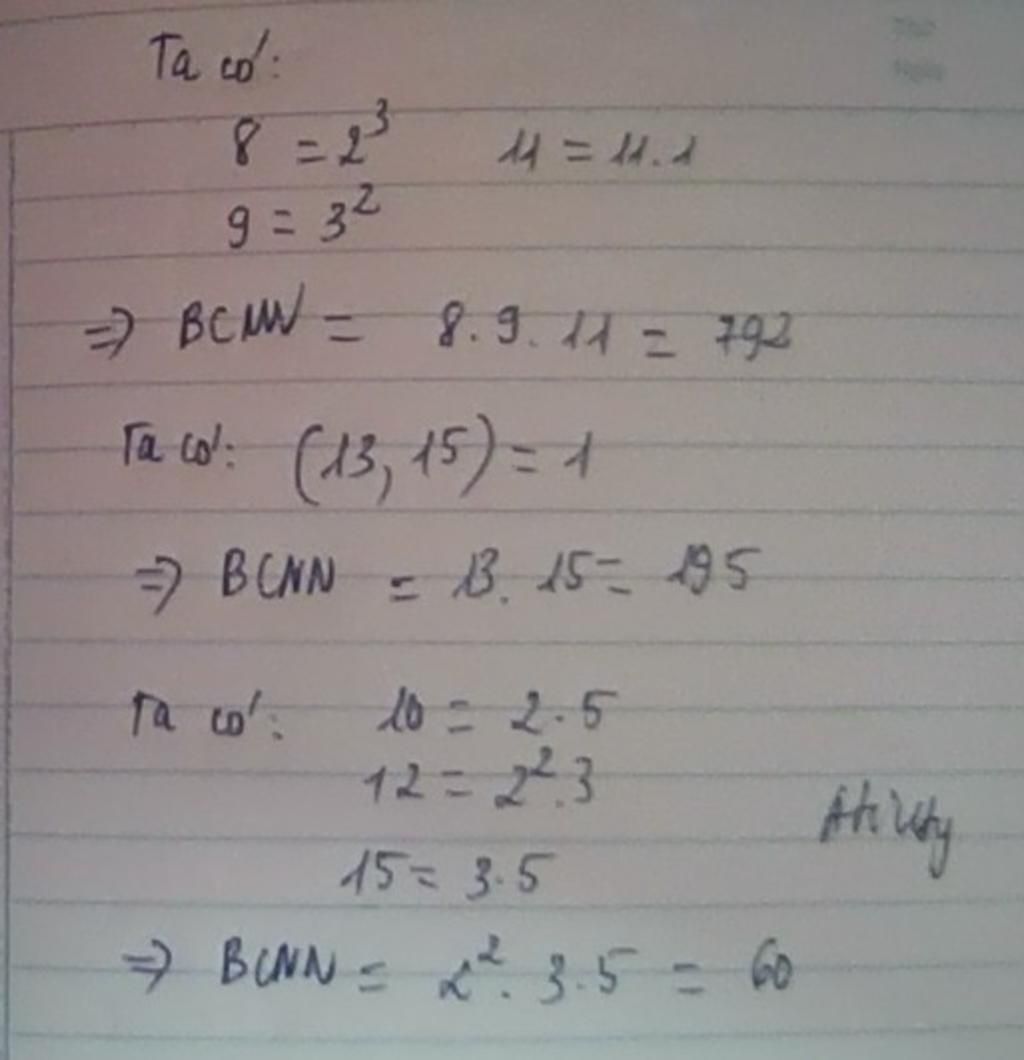 Ta có:
8 = 2³ 11 = 11.1
9 = 3²
=> BCNN = 8.9.11 = 792
Ta có: (13, 15) = 1
=> BCNN = 13.15 = 195
Ta có: 10 = 2.5
12 = 2².3
15 = 3.5
=> BCNN = 2².3.5 = 60